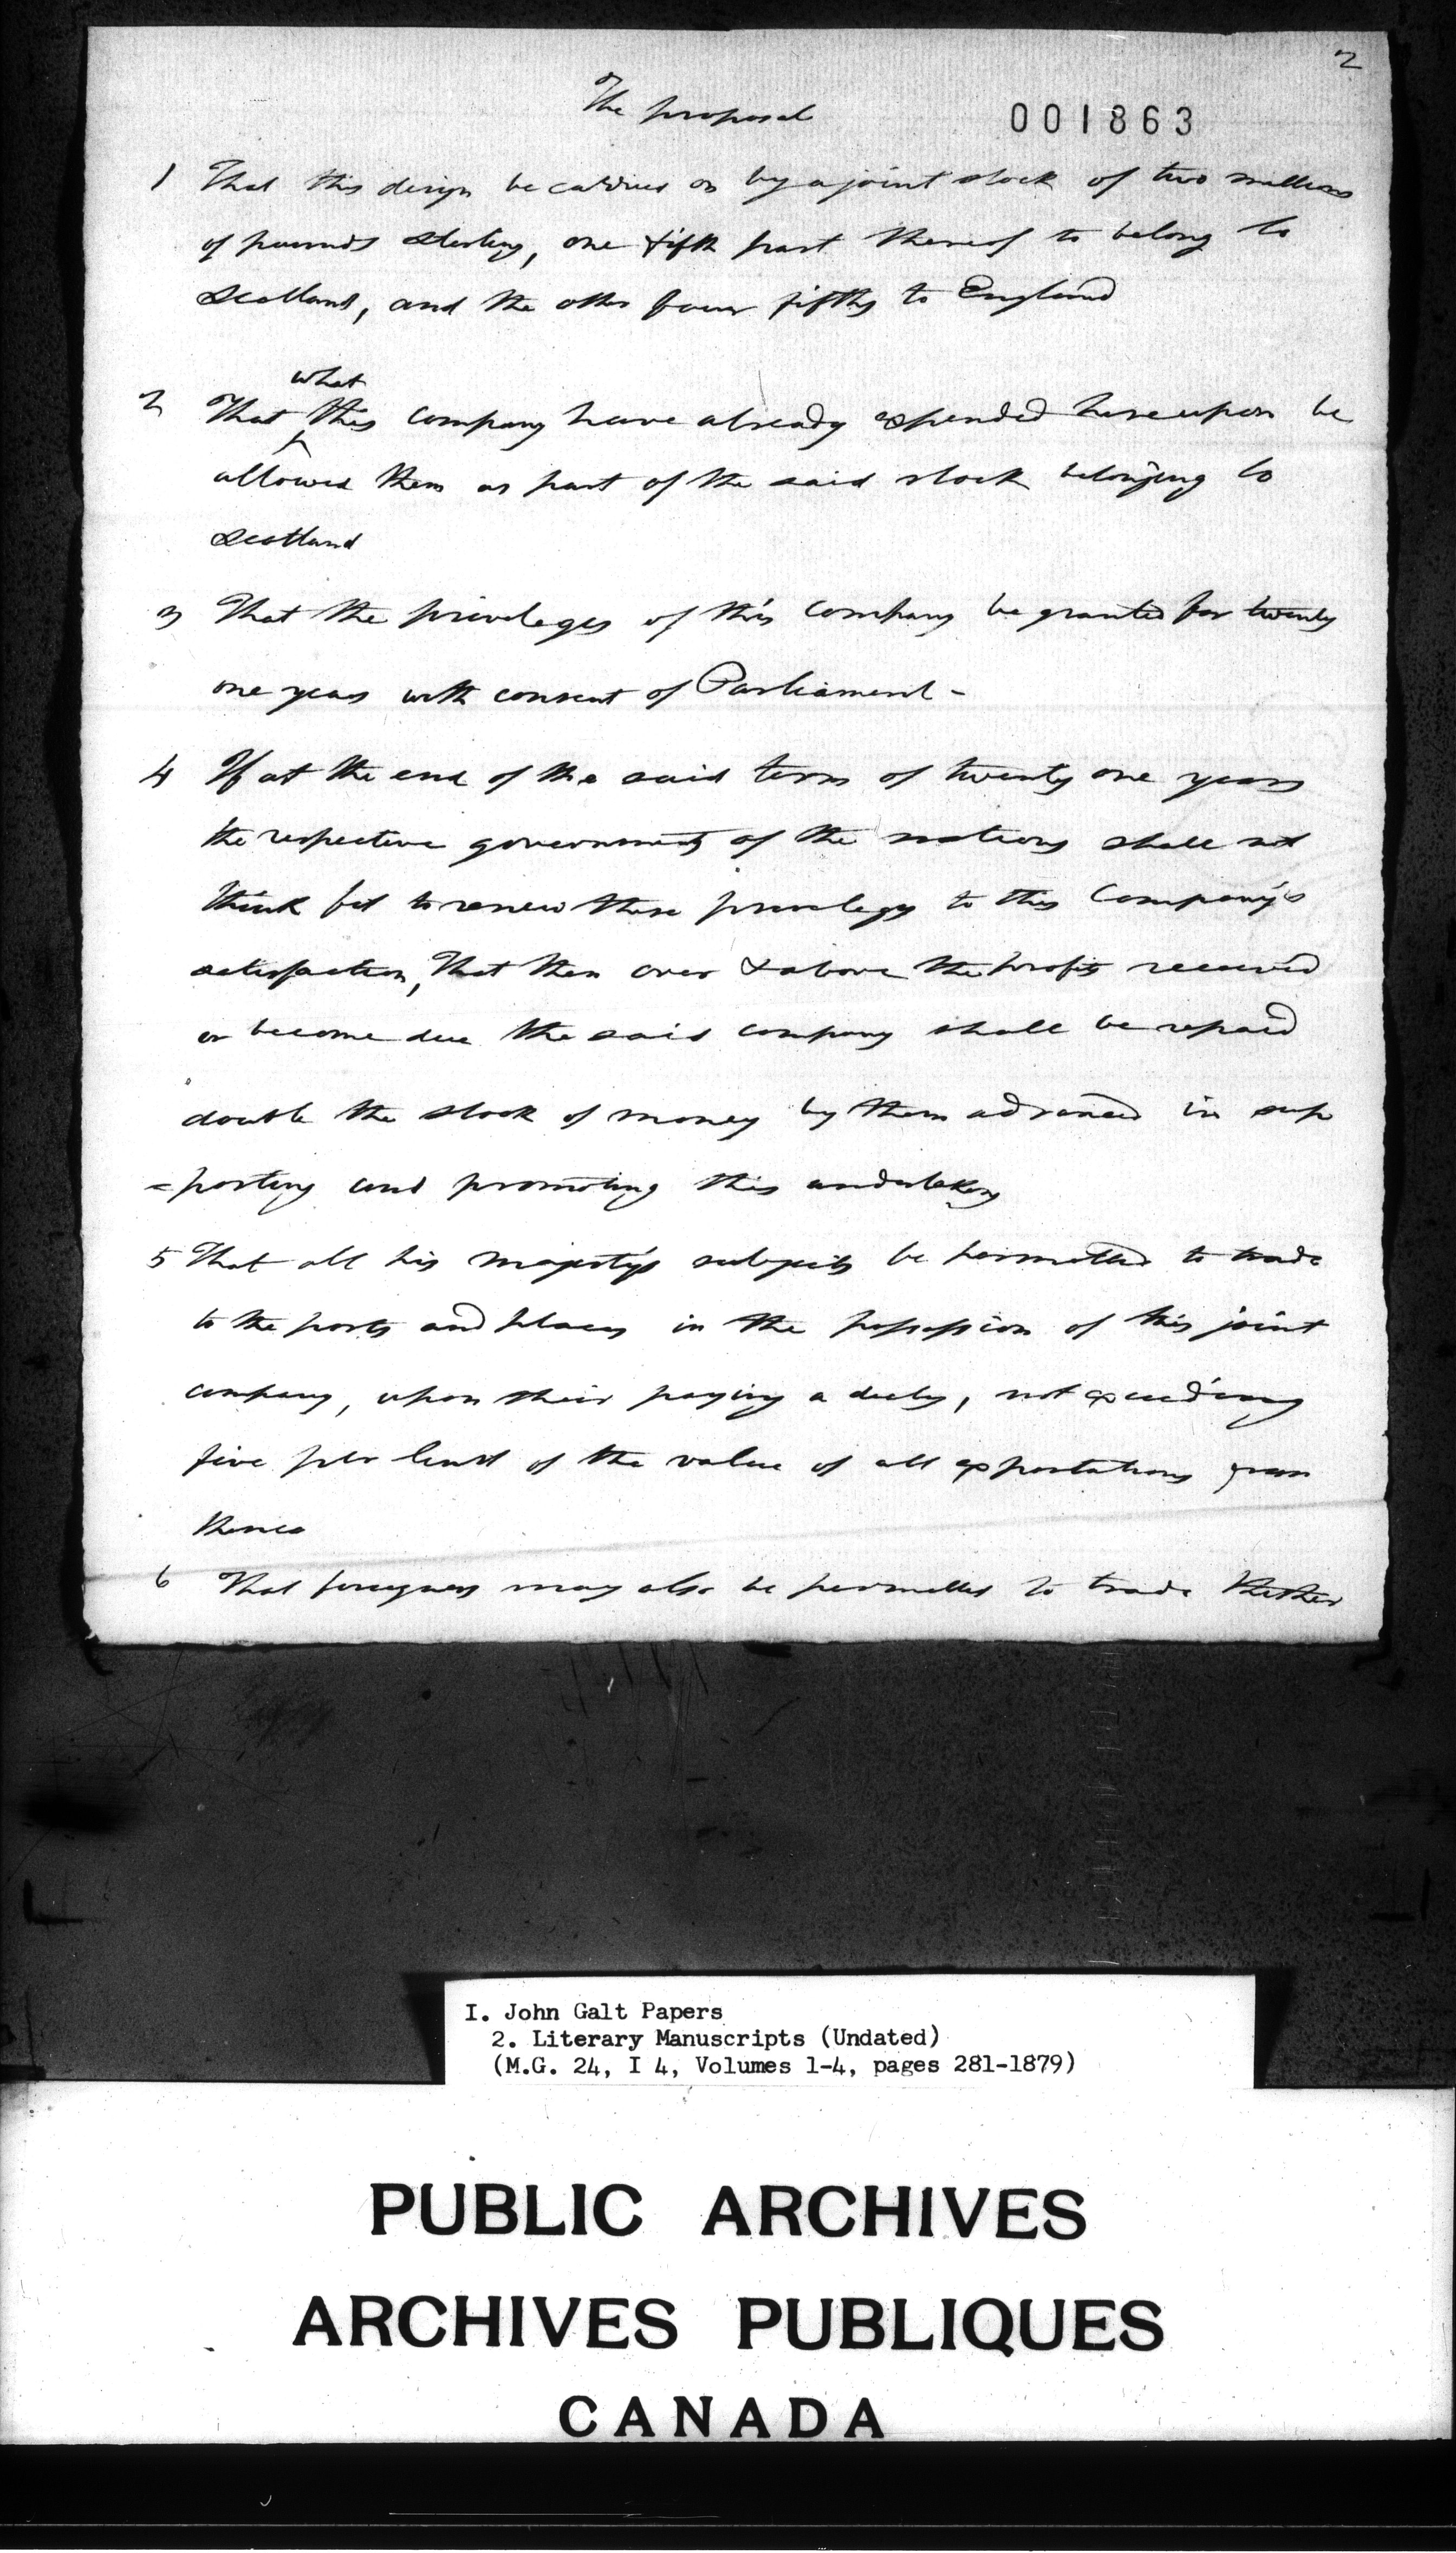 2
The proposal
001863
1 That this design be carried on by a joint stock of two millions
of pounds sterling, one fifth part thereof to belong to
Scotland, and the other four fifths to England
what
2 That this company have already expended hereupon be
allowed them as part of the said stock belonging to
Scotland
3 That the priveleges of this company be granted for twenty
one years with consent of Parliament -
4 If at the end of the said term of twenty one years
the respective governments of the nations shall not
think fit to renew these privileges to this Company's
satisfaction, That then over & above the profits received
or become due the said company shall be repaid
double the stock of money by them advanced in sup
=porting and promoting this undertaking
5 That all his majesty's subjects be permitted to trade
to the ports and places in the possession of this joint
company, upon their paying a duty, not exceeding
five per Cent of the value of all exportations from
thence
6 That foreigners may also be permitted to trade thither
I. John Galt Papers
2. Literary Manuscripts (Undated)
(M.G. 24, I 4, Volumes 1-4, pages 281-1879)
PUBLIC ARCHIVES
ARCHIVES PUBLIQUES
CANADA